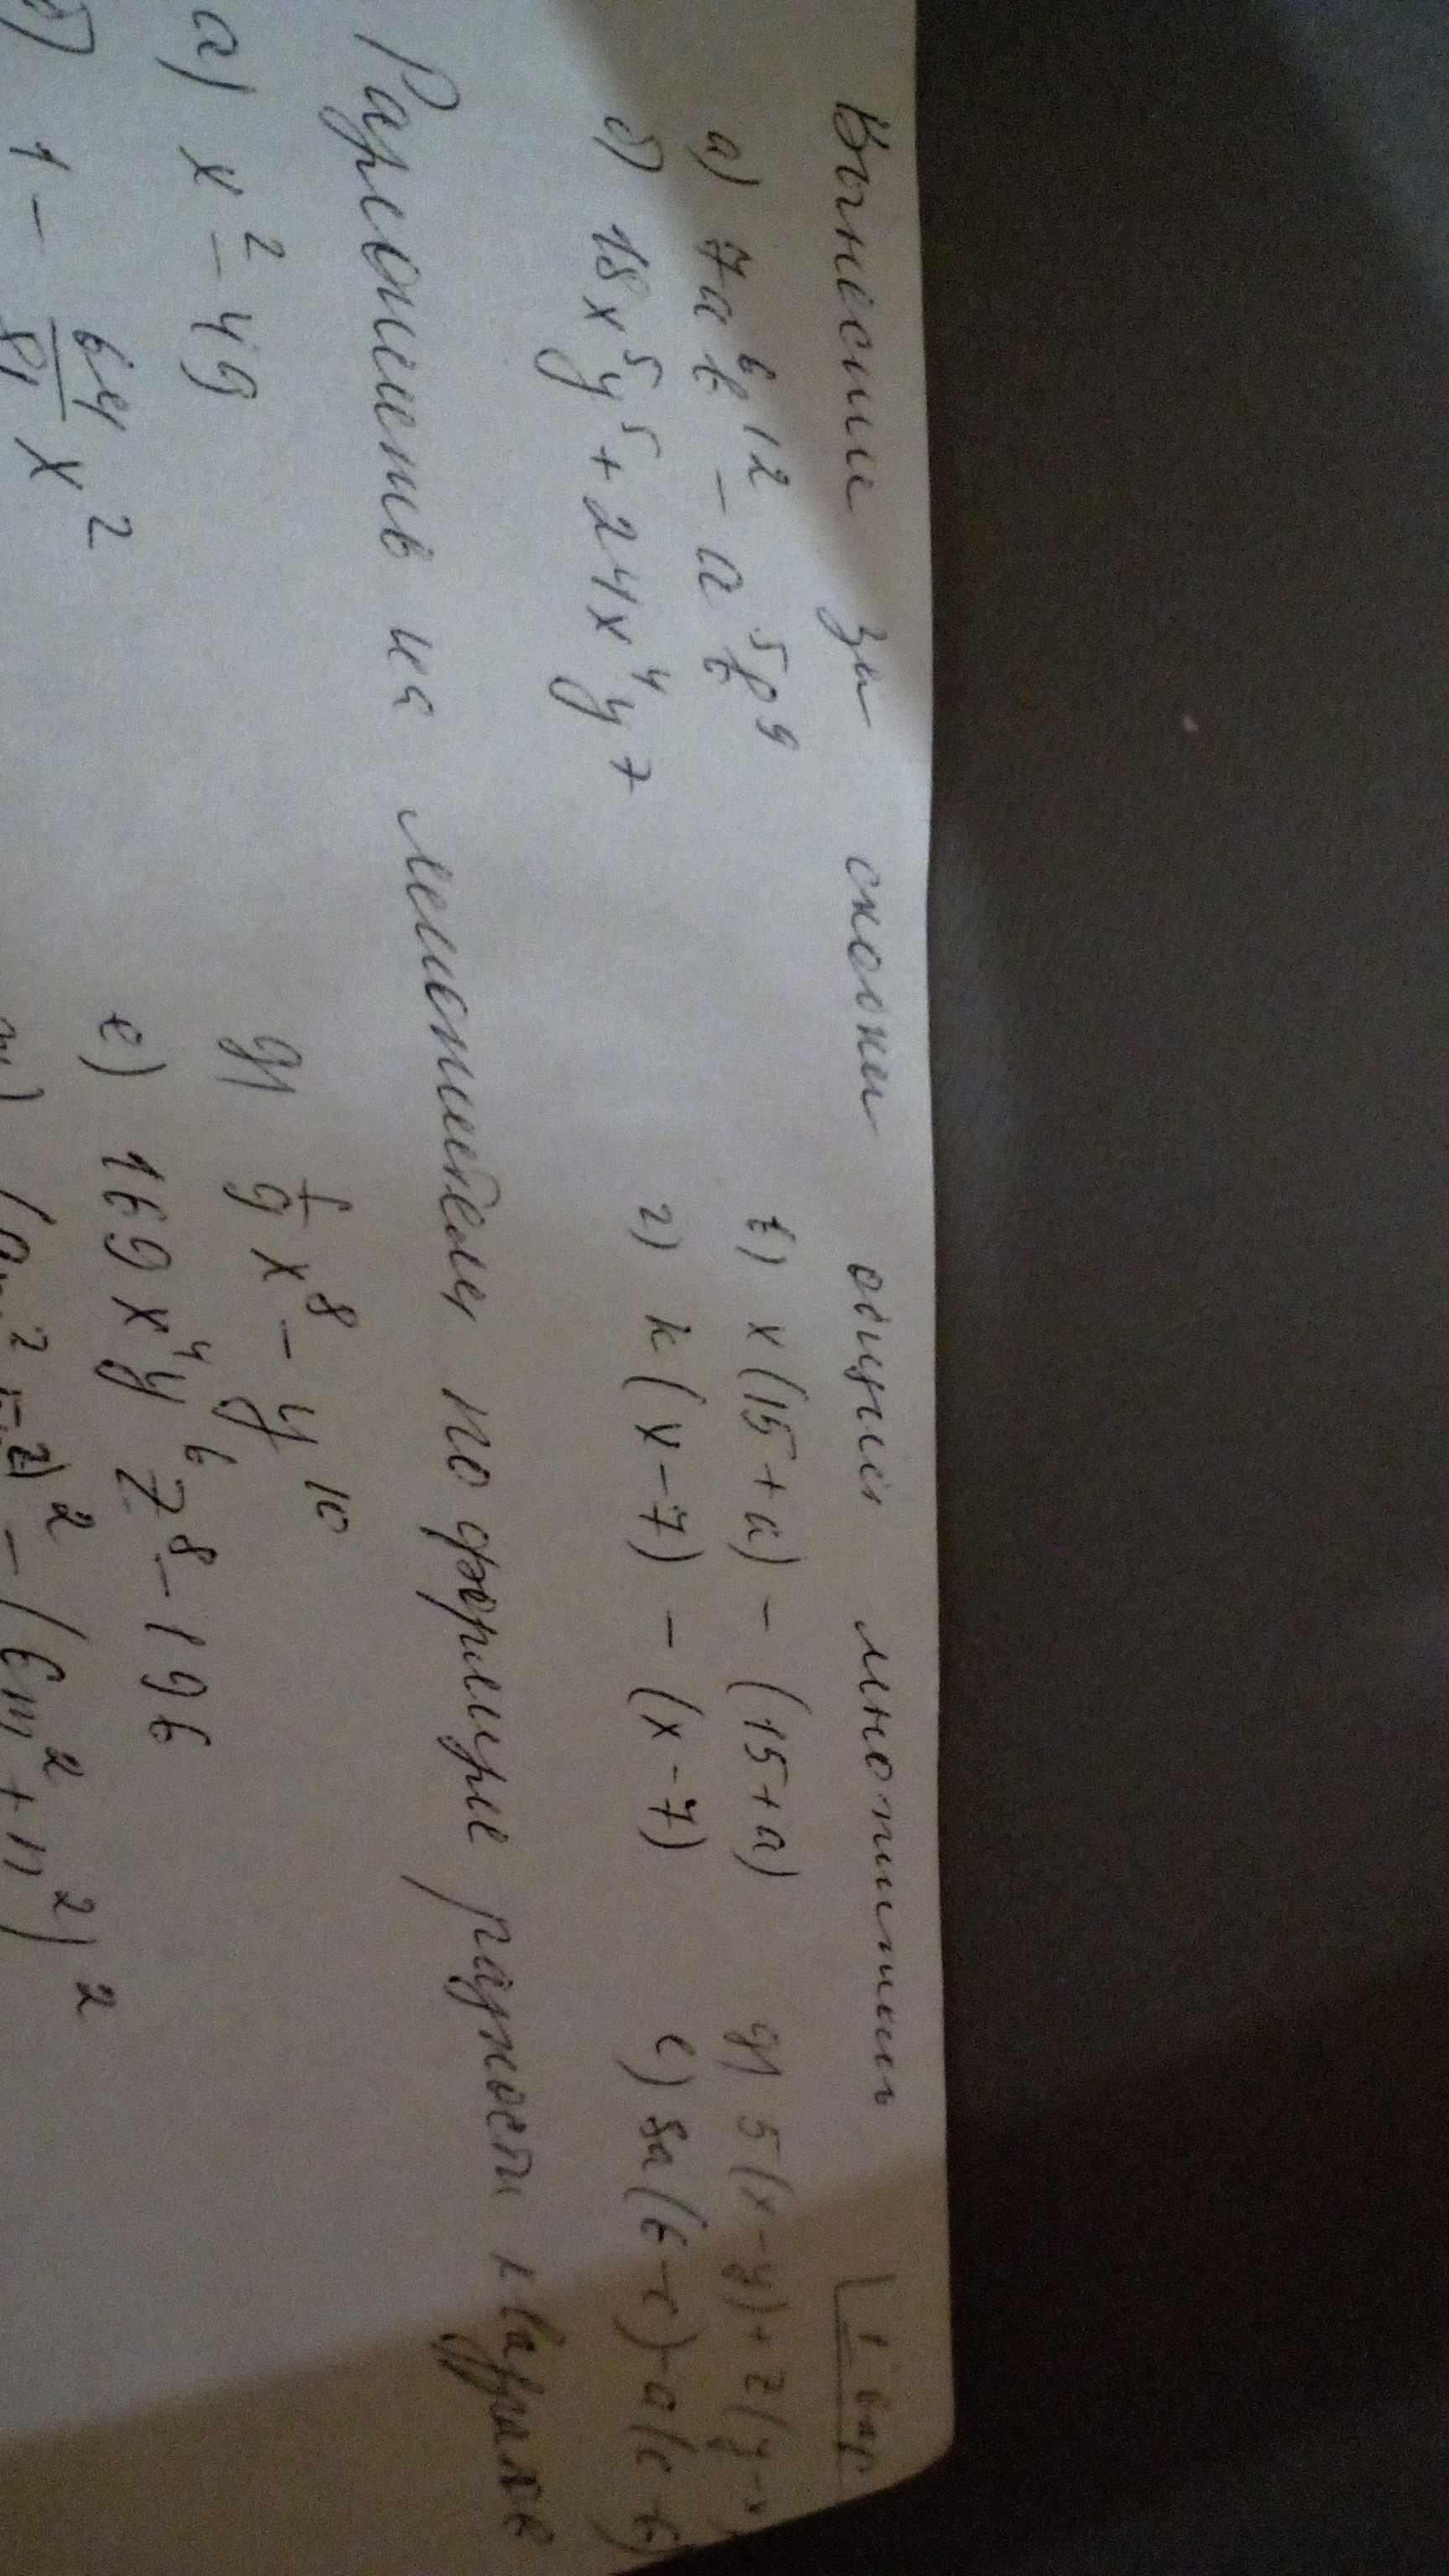 Вынести за скобки общий множитель 1 вар
а) 7a⁶b¹² − a⁵b⁹ в) x(15+a) − (15+a) д) 5(x−y)+z(y−x)
б) 18x⁵y⁵+24x⁴y⁷ г) k(x−7) − (x−7) е) 8a(b−c)−a(c−b)
Разложить на множители по формуле разности квадратов
а) x² − 49 д) 1/9 x⁸ − y¹⁰
б) 1 − 64/81 x² е) 169x⁴y⁶z⁸ − 196
− (6m² + n²)²